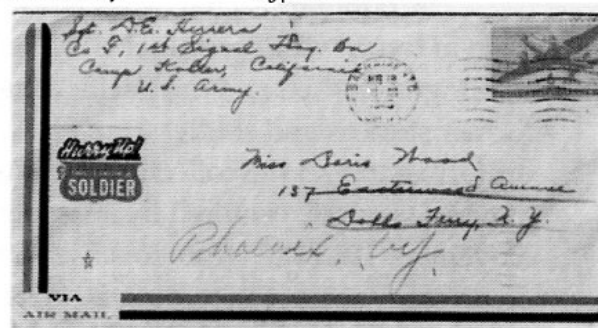 Sgt. D.E. Herrera
Co F, 1st Signal Bn
Camp Kohler, California
U.S. Army.
Hurry Up!
SOLDIER
Miss Doris Wood
137 Avenue
Dobbs Ferry, N.Y.
Phoenix,
VIA
AIR MAIL